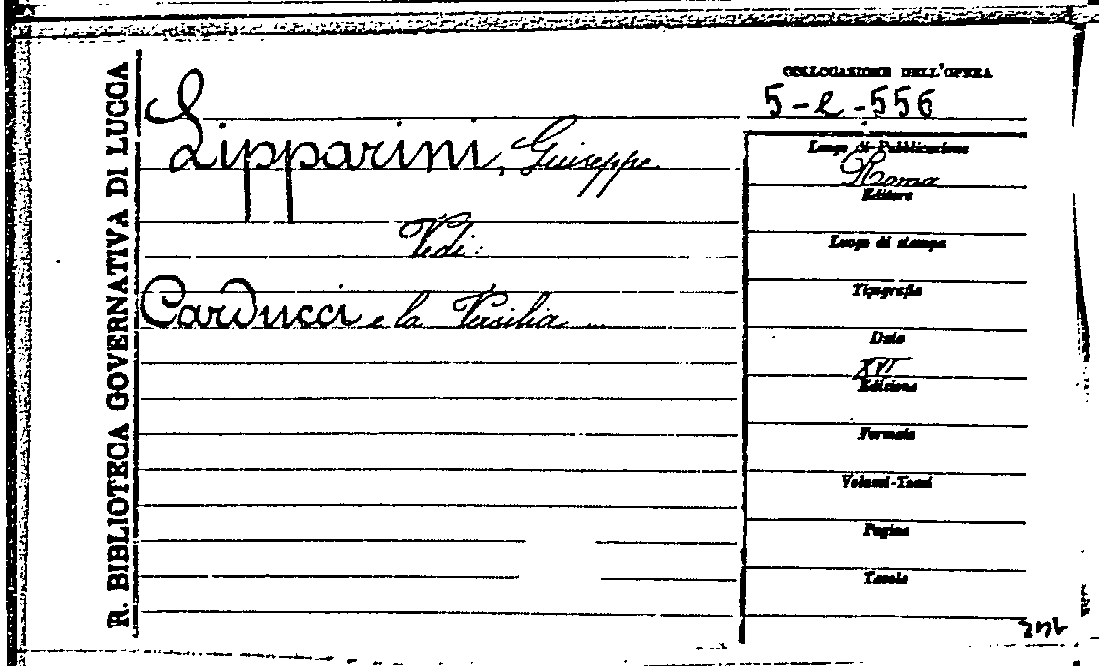 R. BIBLIOTECA GOVERNATIVA DI LUCCA
COLLOCAZIONE DELL'OPERA
5-e-556
Lipparini, Giuseppe
Vedi:
Carducci e la Versilia ...
Luogo di Pubblicazione
Roma
Editore
Luogo di stampa
Tipografia
Data
XVI
Edizione
Formato
Volumi-Tomi
Pagine
Tavole